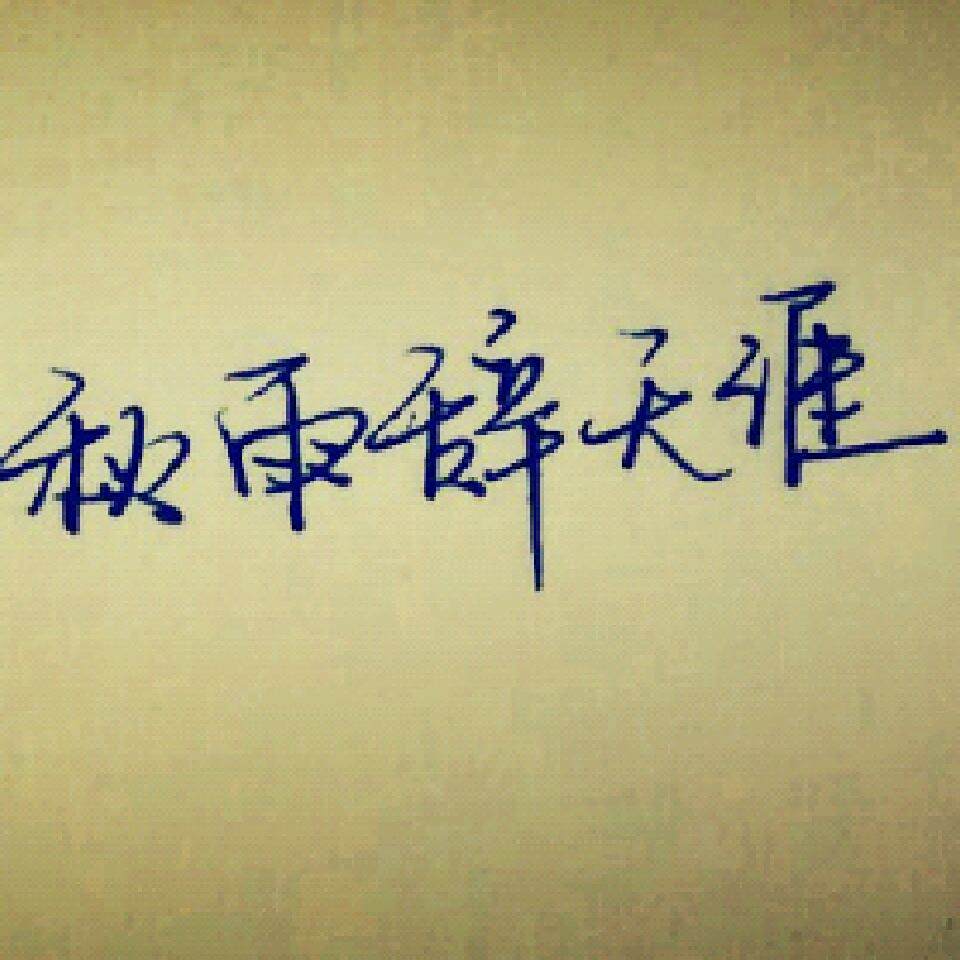 秋雨辞天涯